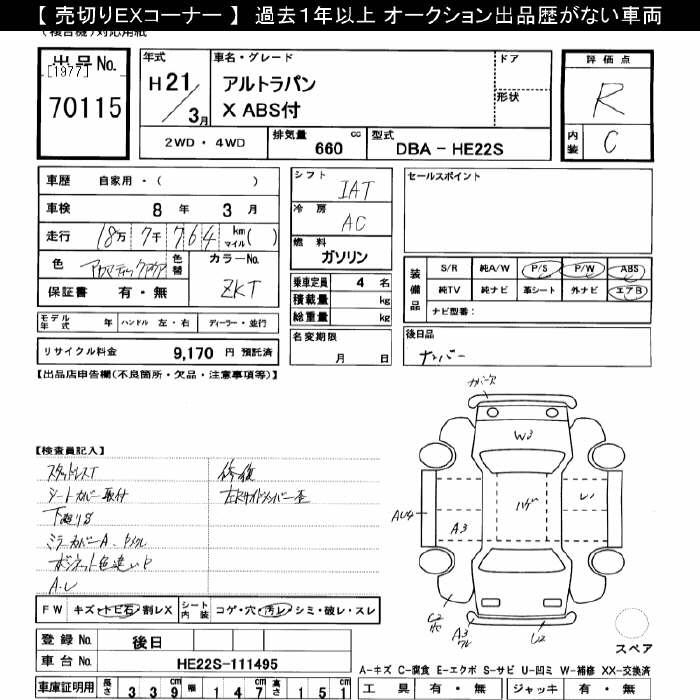 【 売切りEXコーナー 】 過去１年以上 オークション出品歴がない車両
(複合機)対応用紙
出品No.
[1977]
70115
年式
H21/3月
車名・グレード
アルトラパン
X ABS付
ドア
形状
評価点
R
内装
C
2WD・4WD
排気量 660 cc
型式 DBA - HE22S
車歴 自家用・( )
車検 8 年 3 月
走行 18万 7千 764 km マイル( )
色
色替
カラーNo.
ZKT
保証書 有・無
シフト
IAT
冷房
AC
燃料
ガソリン
乗車定員 4 名
積載量 kg
総重量 kg
セールスポイント
装備品
S/R 純A/W P/S P/W ABS
純TV 純ナビ 革シート 外ナビ エアB
ナビ型番：
モデル年式 年 ハンドル 左・右 ディーラー・並行
リサイクル料金 9,170 円 預託済
名変期限
月 日
後日品
ナンバー
【出品店申告欄(不良箇所・欠品・注意事項等)】
【検査員記入】
スタッドレスT
シートカバー取付
下廻りS
ミラーカバーA、
ボンネット色違い
A・U
修復
カバー欠
W3
ハゲ
AU4
A3
U2
FW キズ・トビ石・割レX
シート内装 コゲ・穴・汚レ・シミ・破レ・スレ
登録No. 後日
車台No. HE22S-111495
車庫証明用 長さ 339cm 幅 147cm 高さ 151cm
スペア
A-キズ C-腐食 E-エクボ S-サビ U-凹ミ W-補修 XX-交換済
工具 有・無 ジャッキ 有・無